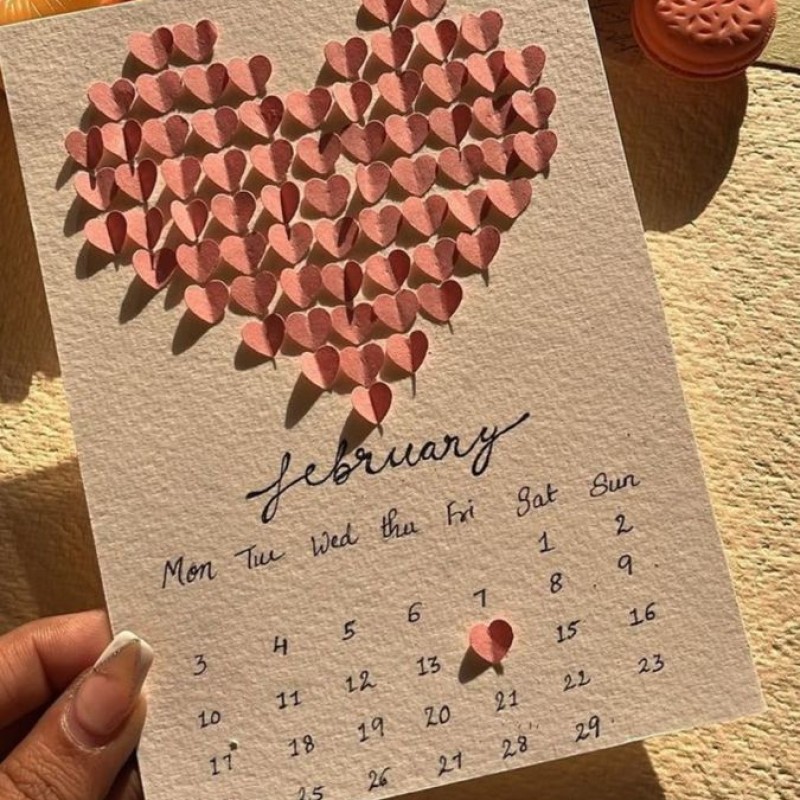 february
Mon Tue Wed thu Fri Sat Sun
1 2
3 4 5 6 7 8 9
10 11 12 13 15 16
17 18 19 20 21 22 23
25 26 27 28 29